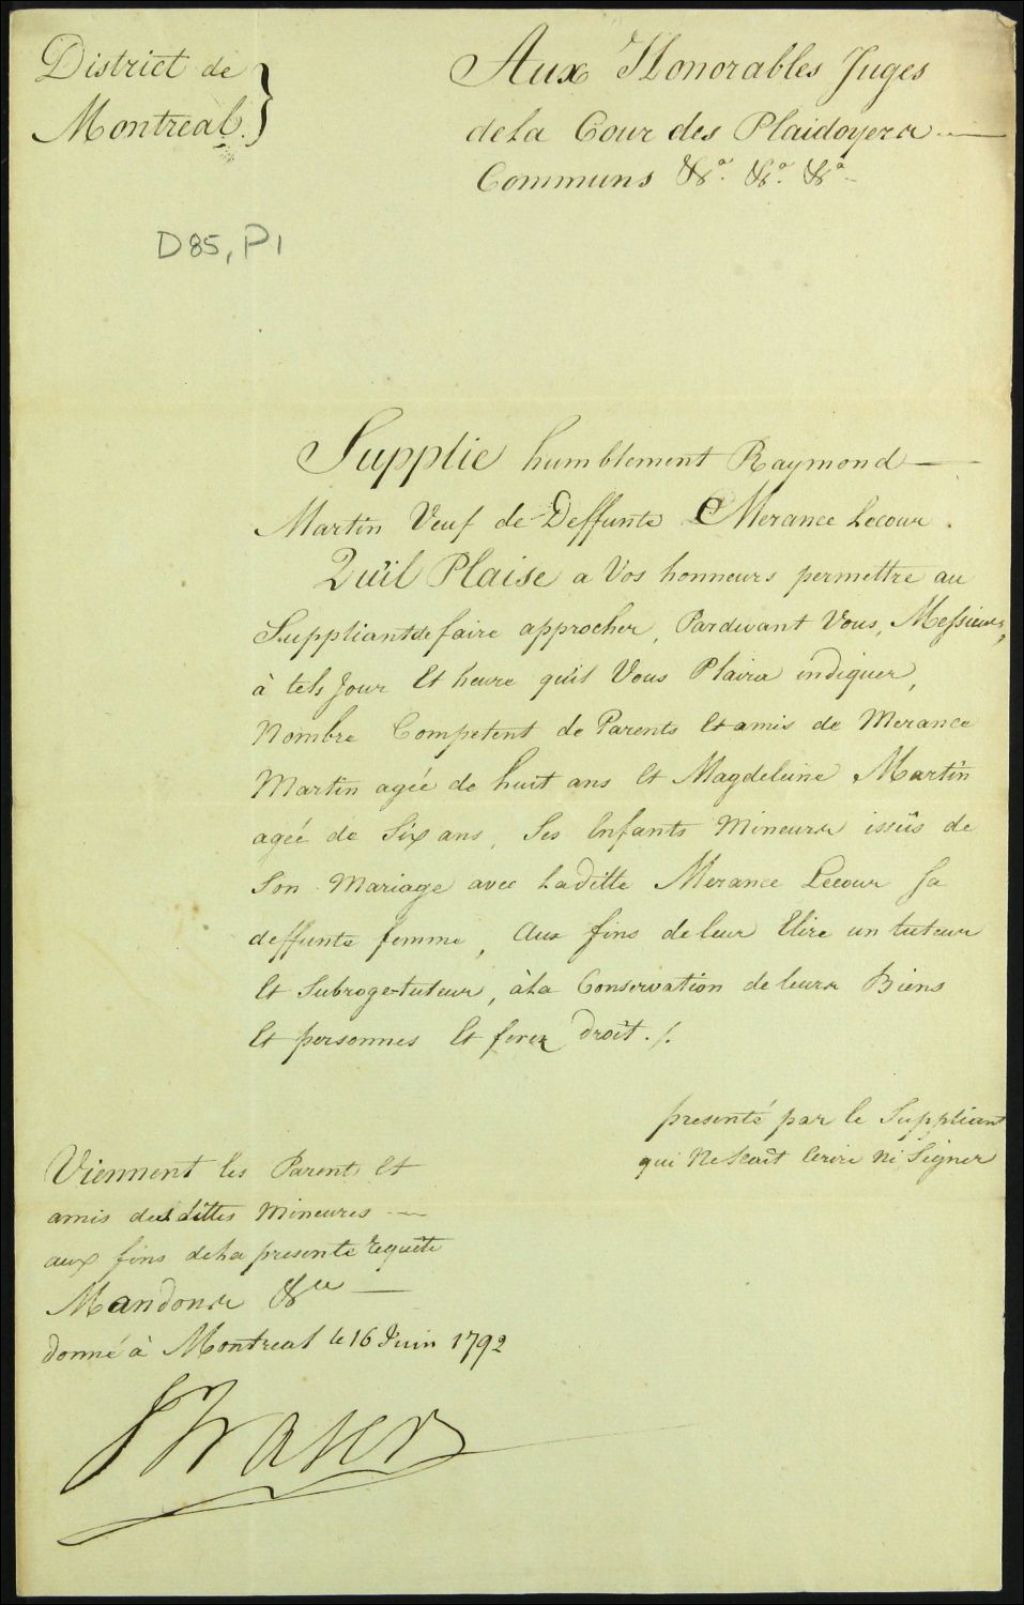 District de
Montreal. }
Aux Honorables Juges
dela Cour des Plaidoyers
Communs &ca. &ca. &ca
D85, P1
Supplie humblement Raymond
Martin Veuf de Deffunte Merance Lecour.
Qu'il Plaise a Vos honneurs permettre au
Suppliant de faire approcher, Pardevant Vous, Messieurs,
à tels Jour Et heure qu'il Vous Plaira indiquer,
Nombre Competent de Parents Et amis de Merance
Martin agée de huit ans Et Magdeleine Martin
ageé de Six ans, Ses Enfants Mineurs issûs de
Son Mariage avec Laditte Merance Lecour Sa
deffunte femme, Aux fins de leur Elire un tuteur
Et Subroge-tuteur, àla Conservation de leurs Biens
Et personnes Et ferez droit ./.
presenté par le Suppliant
qui Ne Scait Ecrire Ni Signer
Viennent les Parents Et
amis desdittes Mineures
aux fins dela presente requête
Mandons &ca
donné à Montreal le 16 Juin 1792
Fraser